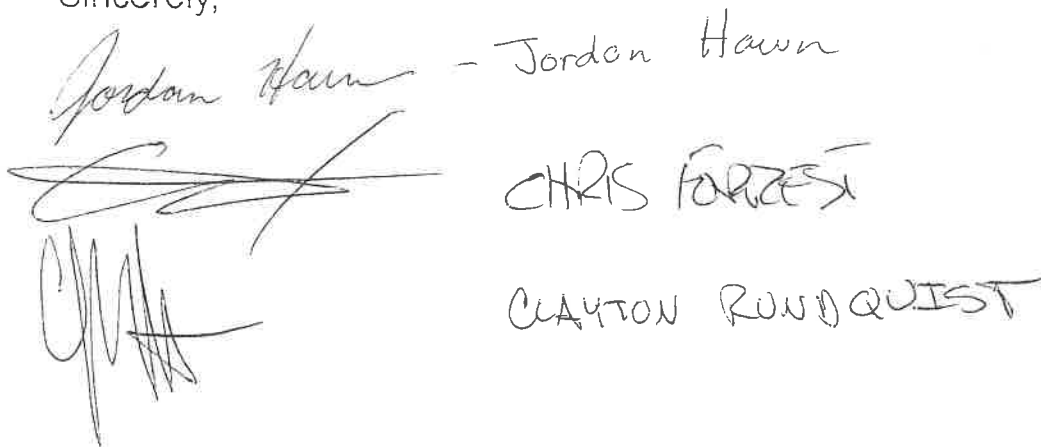 Sincerely,
Jordan Hawn - Jordan Hawn
CHRIS FORREST
CLAYTON RUNDQUIST